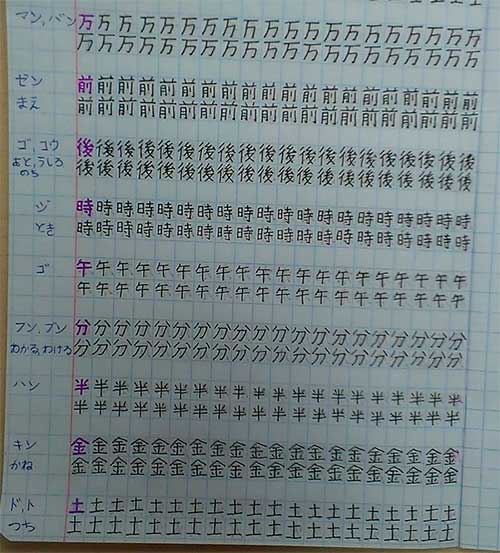 マン, バン 万万万万万万万万万万万万万万万万万万万万
万万万万万万万万万万万万万万万万万万万万
ゼン 前前前前前前前前前前前前前前前前前前前前
まえ 前前前前前前前前前前前前前前前前前前前前
ゴ, コウ 後後後後後後後後後後後後後後後後後後後後
あと, うしろ 後後後後後後後後後後後後後後後後後後後後
のち
ジ 時時時時時時時時時時時時時時時時時時時時
とき 時時時時時時時時時時時時時時時時時時時時
ゴ 午午午午午午午午午午午午午午午午午午午午
午午午午午午午午午午午午午午午午午午午午
フン, ブン 分分分分分分分分分分分分分分分分分分分分
わかる, わける 分分分分分分分分分分分分分分分分分分分分
ハン 半半半半半半半半半半半半半半半半半半半半
半半半半半半半半半半半半半半半半半半半半
キン 金金金金金金金金金金金金金金金金金金金金
かね 金金金金金金金金金金金金金金金金金金金金
ド, ト 土土土土土土土土土土土土土土土土土土土土
つち 土土土土土土土土土土土土土土土土土土土土